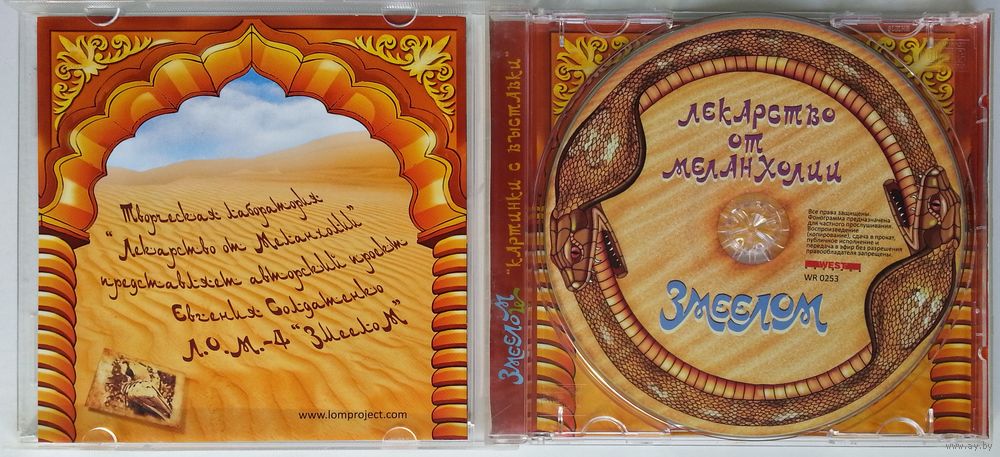 Творческая лаборатория
"Лекарство от Меланхолии"
представляет авторский проект
Евгения Солдатенко
Л.О.М.-4 "ЗмееloM"
www.lomproject.com
Змеелом "Картинки с выставки"
Лекарство
от
Меланхолии
Все права защищены.
Фонограмма предназначена
для частного прослушивания.
Воспроизведение
(копирование), сдача в прокат,
публичное исполнение и
передача в эфир без разрешения
правообладателя запрещены.
WR 0253
Змеелом
www.ay.by